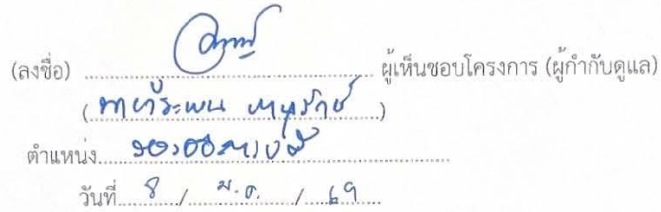 (ลงชื่อ) ผู้เห็นชอบโครงการ (ผู้กำกับดูแล)
( )
ตำแหน่ง รองอธิการบดี
วันที่ 8 / ม.ค. / 69